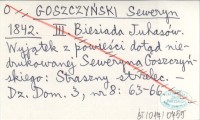 O GOSZCZYŃSKI Seweryn
1842. III. Biesiada Juhasów.
Wyjątek z powieści dotąd nie-
drukowanej Seweryna Goszczyń-
skiego: Straszny strzelec. -
Dz. Dom. 3, nr 8: 63-66.